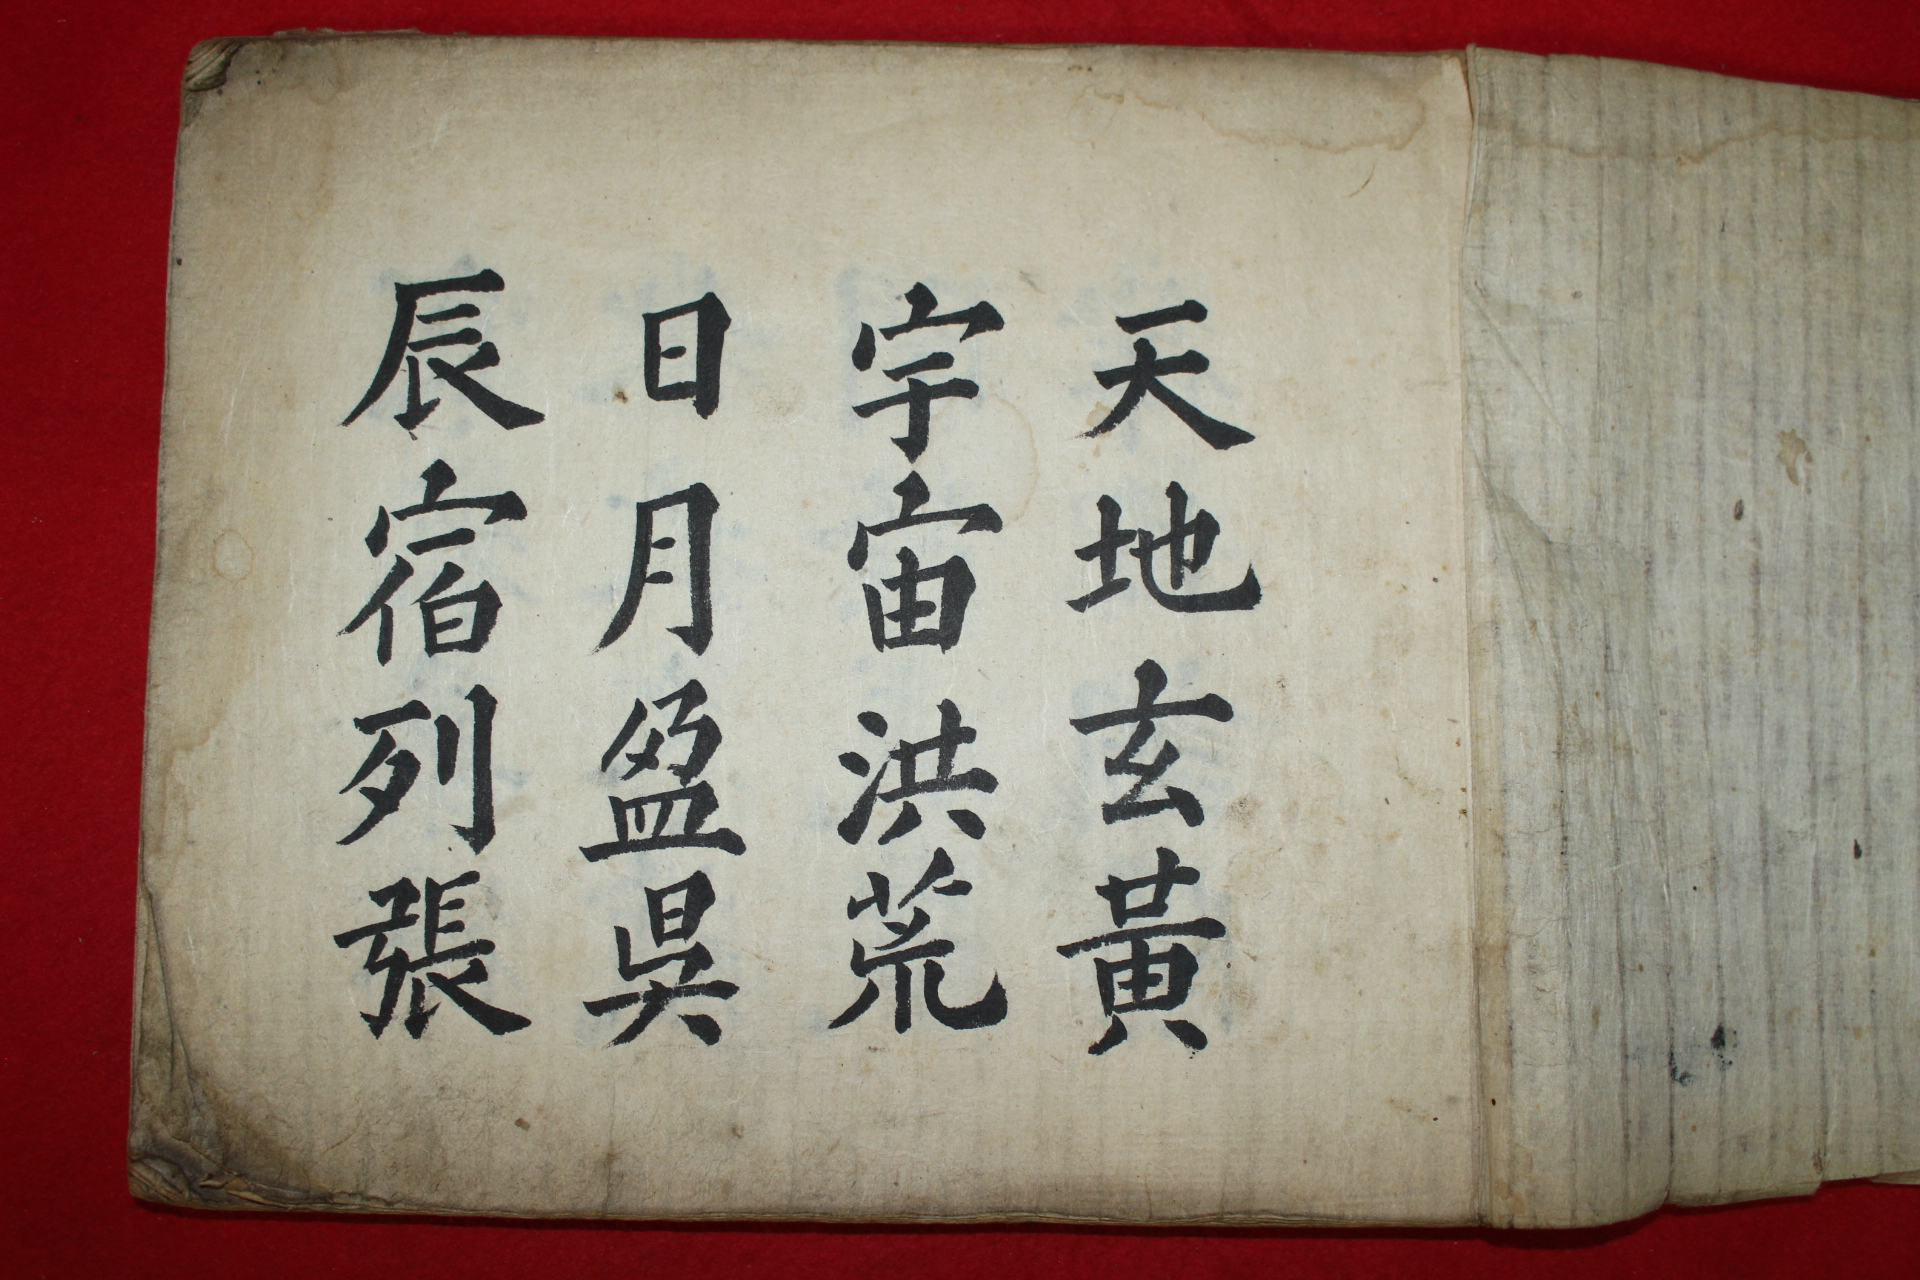 天地玄黃
宇宙洪荒
日月盈昗
辰宿列張